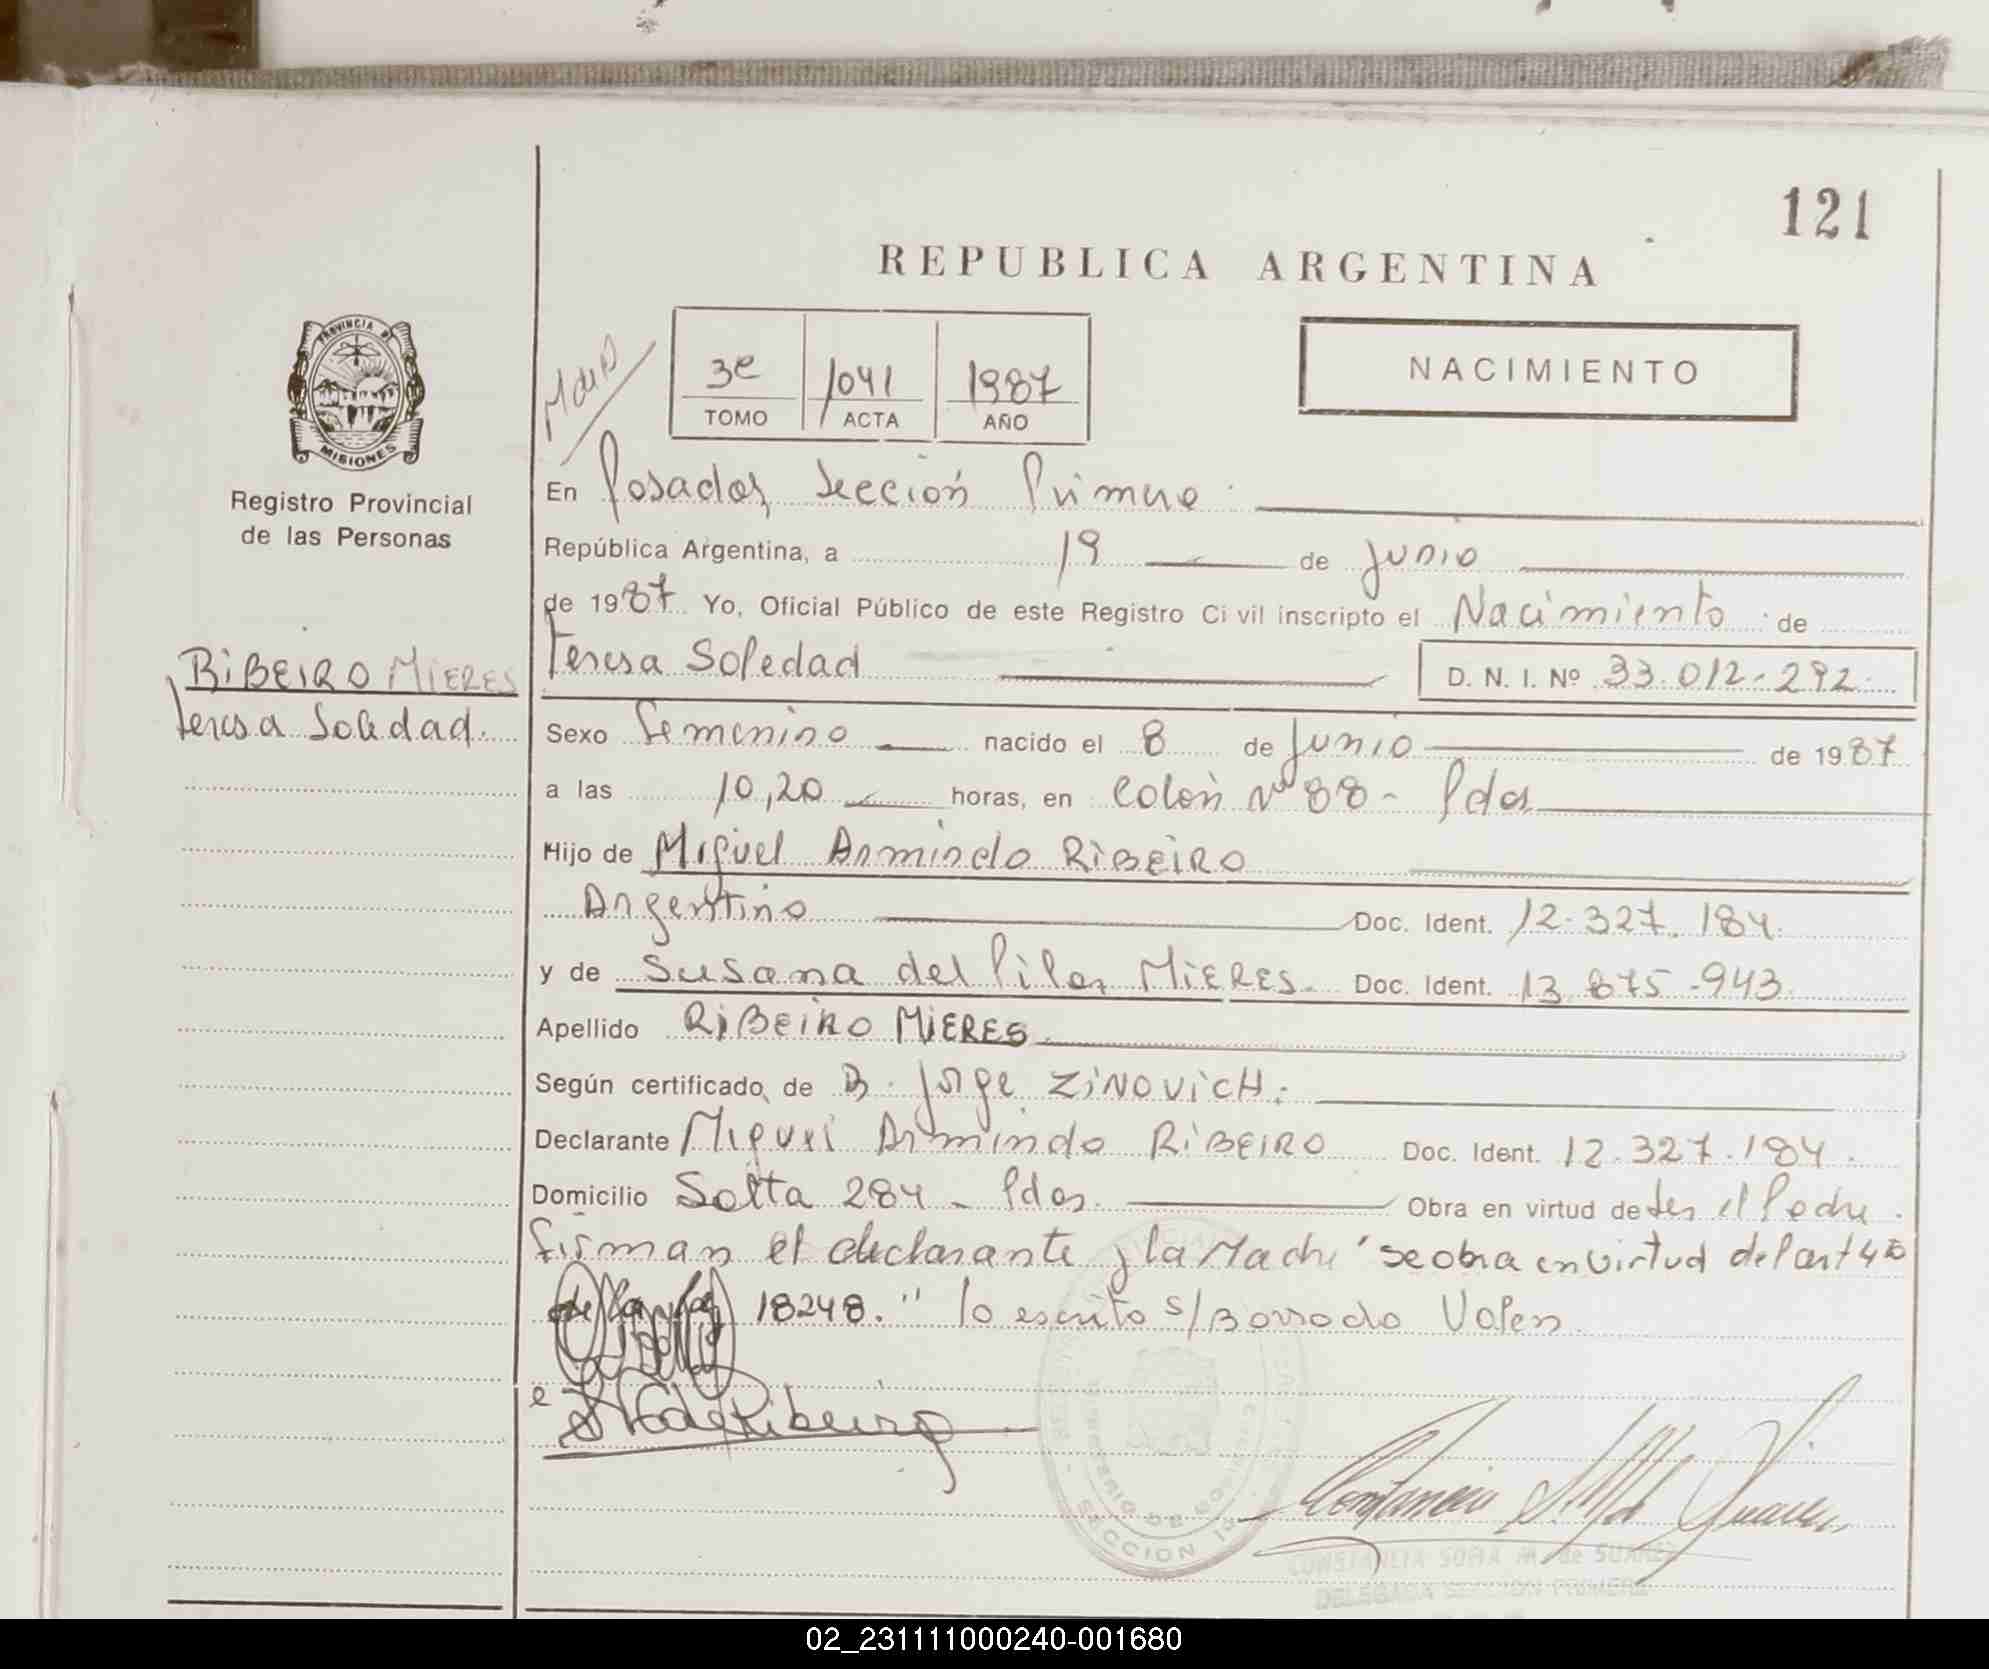 121
REPUBLICA ARGENTINA
PROVINCIA DE
MISIONES
Registro Provincial
de las Personas
3e 1041 1987
TOMO ACTA AÑO
NACIMIENTO
En Posadas, Sección Primera
República Argentina, a 19 de Junio
de 1987 Yo, Oficial Público de este Registro Civil inscripto el Nacimiento de
Teresa Soledad D. N. I. Nº 33.012.292.
RiBEiRO MiERES
Teresa Soledad.
Sexo Femenino nacido el 8 de Junio de 1987
a las 10,20 horas, en Colón Nº 88 - Pdas
Hijo de Miguel Armindo RiBEiRO
Argentino Doc. Ident. 12.327.184.
y de Susana del Pilar MiERES. Doc. Ident. 13.875.943
Apellido RiBEiRO MiERES
Según certificado de D. Jorge ZiNOViCH.
Declarante Miguel Armindo RiBEiRO Doc. Ident. 12.327.184.
Domicilio Salta 284 - Pdas. Obra en virtud de ser el Padre.
Firman el declarante y la Madre "se obra en virtud del art 4to
de la ley 18248." lo escrito s/Borrado Valen.
SECCION 1a
CONSTANCIA SOFIA M. de SUAREZ
DELEGADA SECCION PRIMERA
02_231111000240-001680